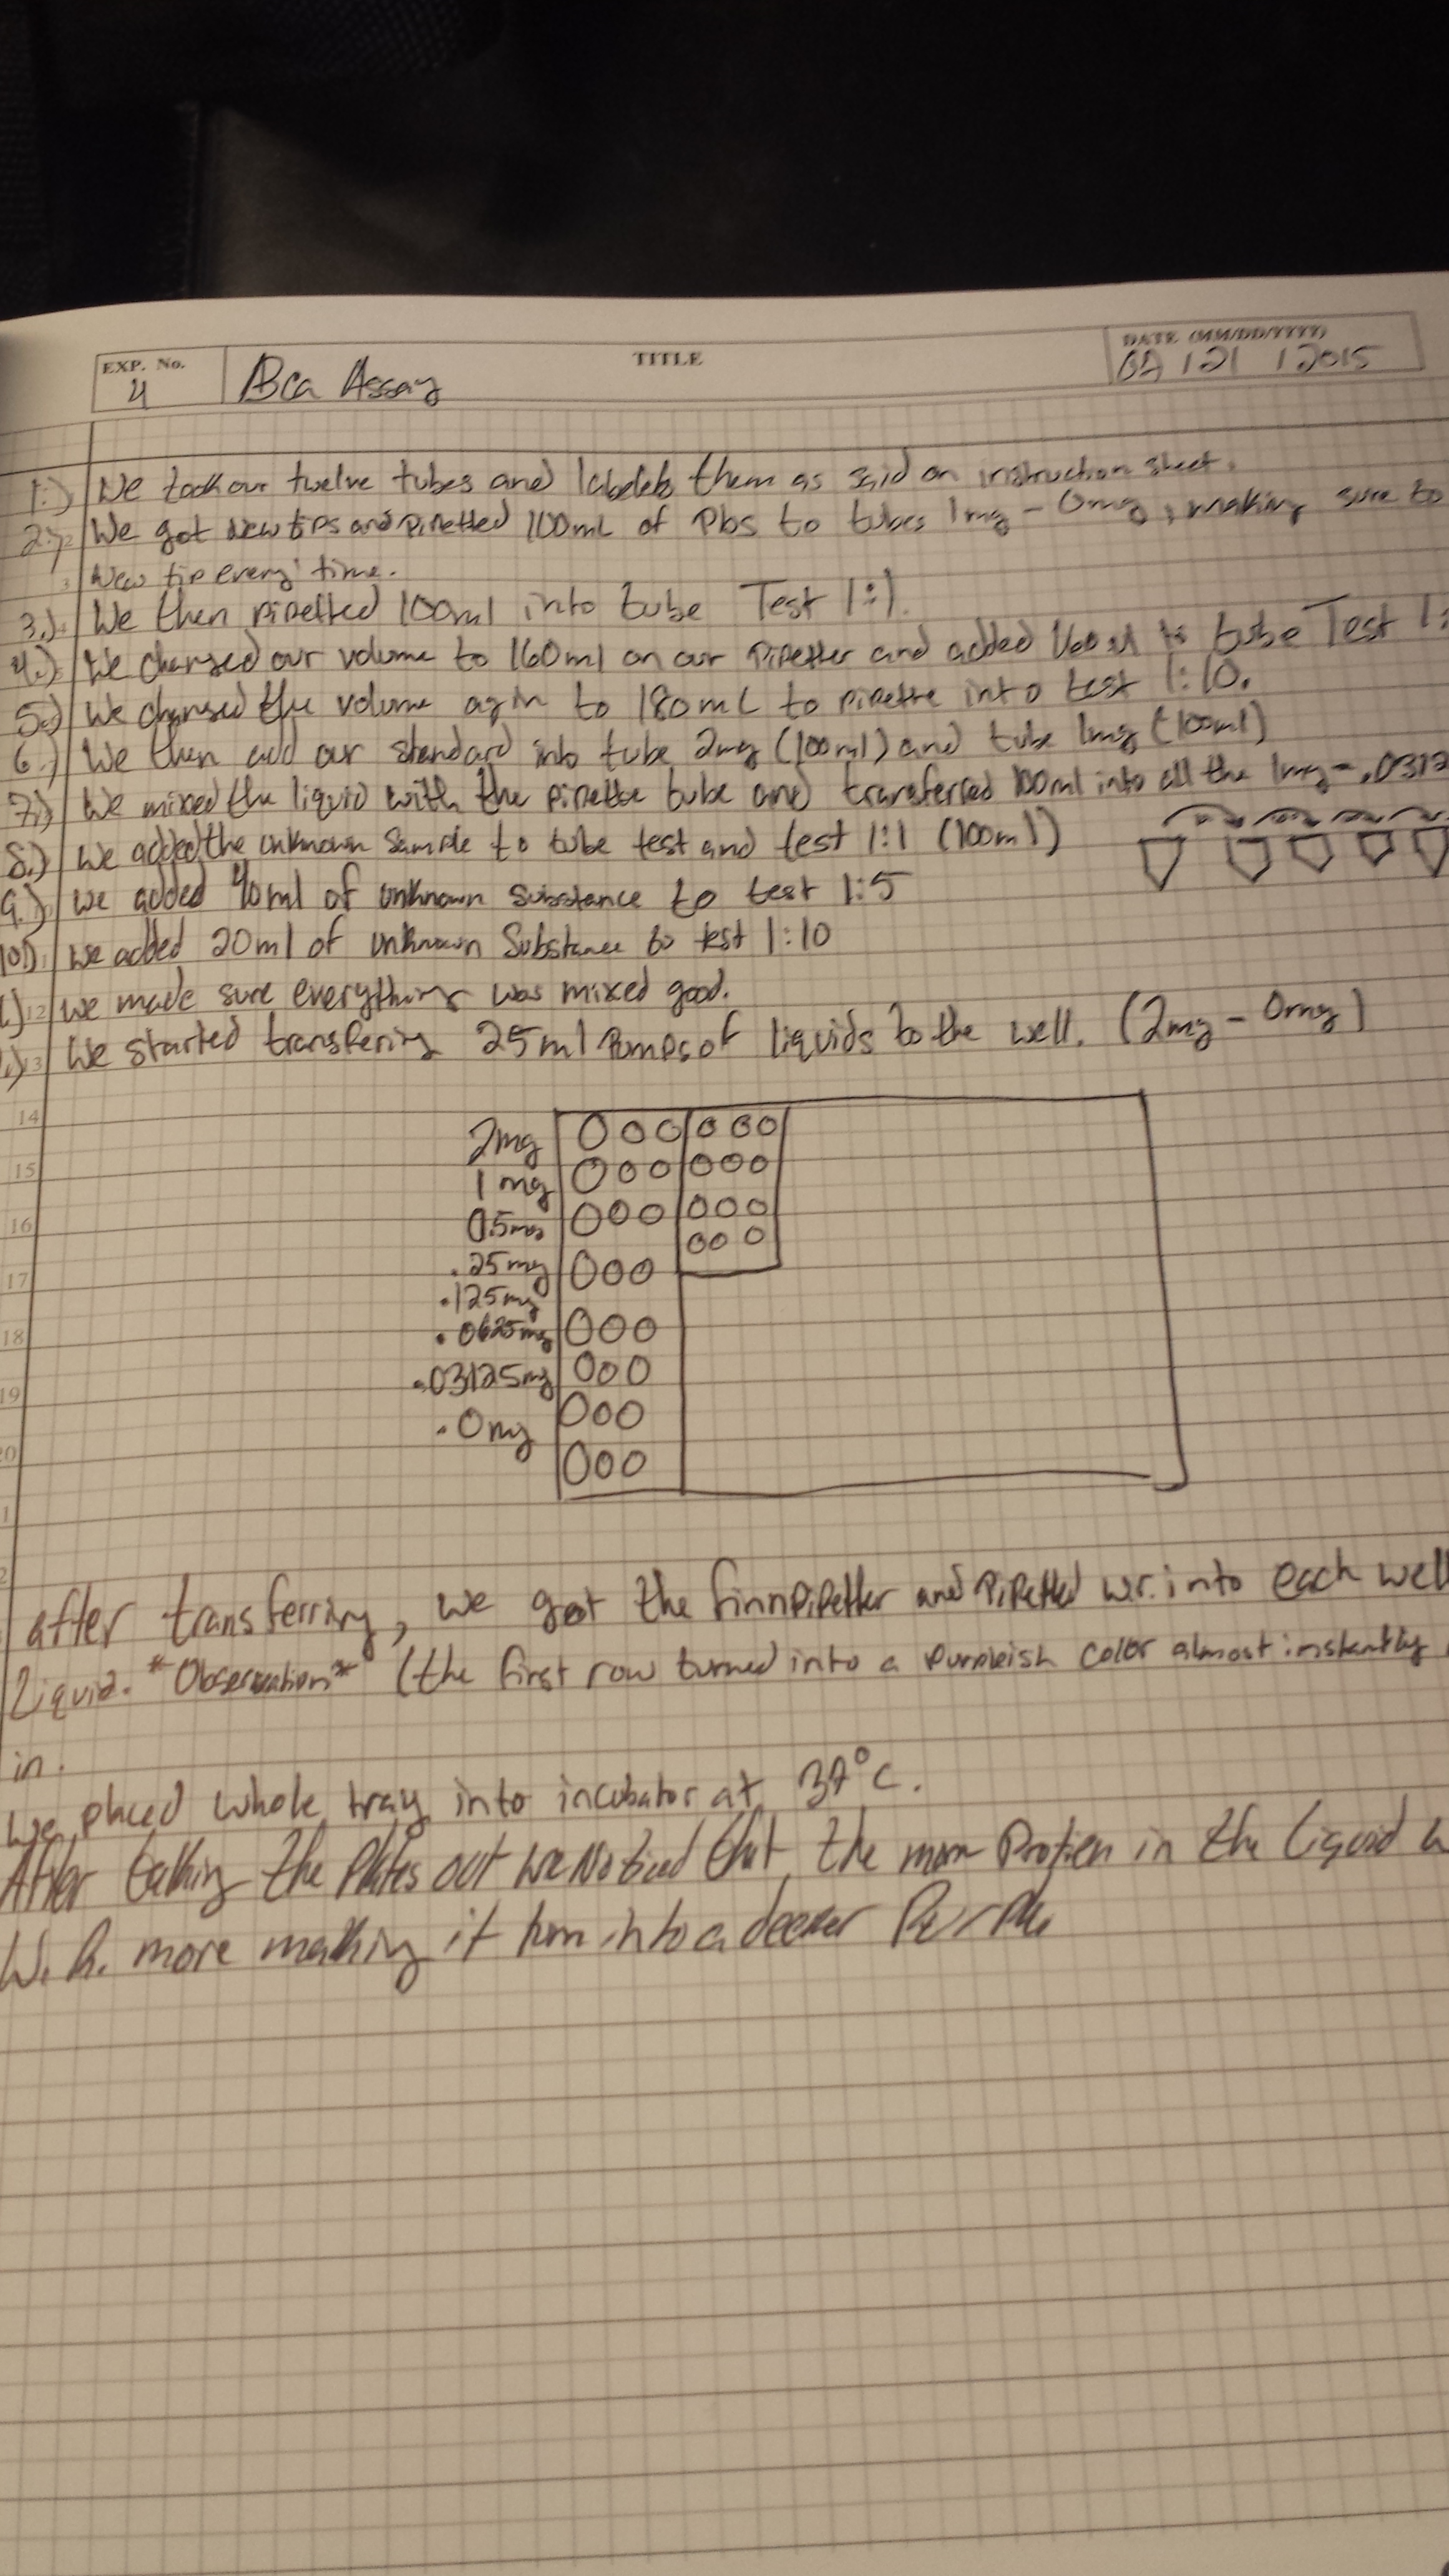 EXP. No. TITLE DATE (MM/DD/YYYY)
4 Bca Assay 121 12015
1.) We took our twelve tubes and labeleb them as said on instruction sheet.
2.) We got new tips and pipetted 100mL of Pbs to tubes 1mg - 0mg, making sure to
3 New tip every time.
3.) We then pipetted 100ml into tube Test 1:1.
4.) We changed our volume to 160ml on our Pipetter and added 160 to tube Test 1:
5.) We changed the volume agin to 180mL to pipette into test 1:10.
6.) We then add our standard into tube 2mg (100ml) and tube 1mg (100ml)
7.) We mixed the liquid with the pipette tube and transferred 100ml into all the 1mg - .0312
8.) We added the unknown sample to tube test and test 1:1 (100ml)
9.) we added 40ml of unknown substance to test 1:5
10.) we added 20ml of unknown Substance to test 1:10
12 we made sure everything was mixed good.
13 We started transfering 25ml Pumps of liquids to the well. (2mg - 0mg)
14 2mg
15 1mg
16 0.5mg
17 .25mg
.125mg
18 .0625mg
19 .03125mg
20 .0mg
after transferring, we got the finnpipetter and Pipetted w.r. into each well
Liquid. *Observation* (the first row turned into a purpleish color almost instantly
in.
We placed whole tray into incubator at 37°C.
After takking the Plates out we noticed that the more Protien in the liquid
W. R. more making it turn into a deeper Purple